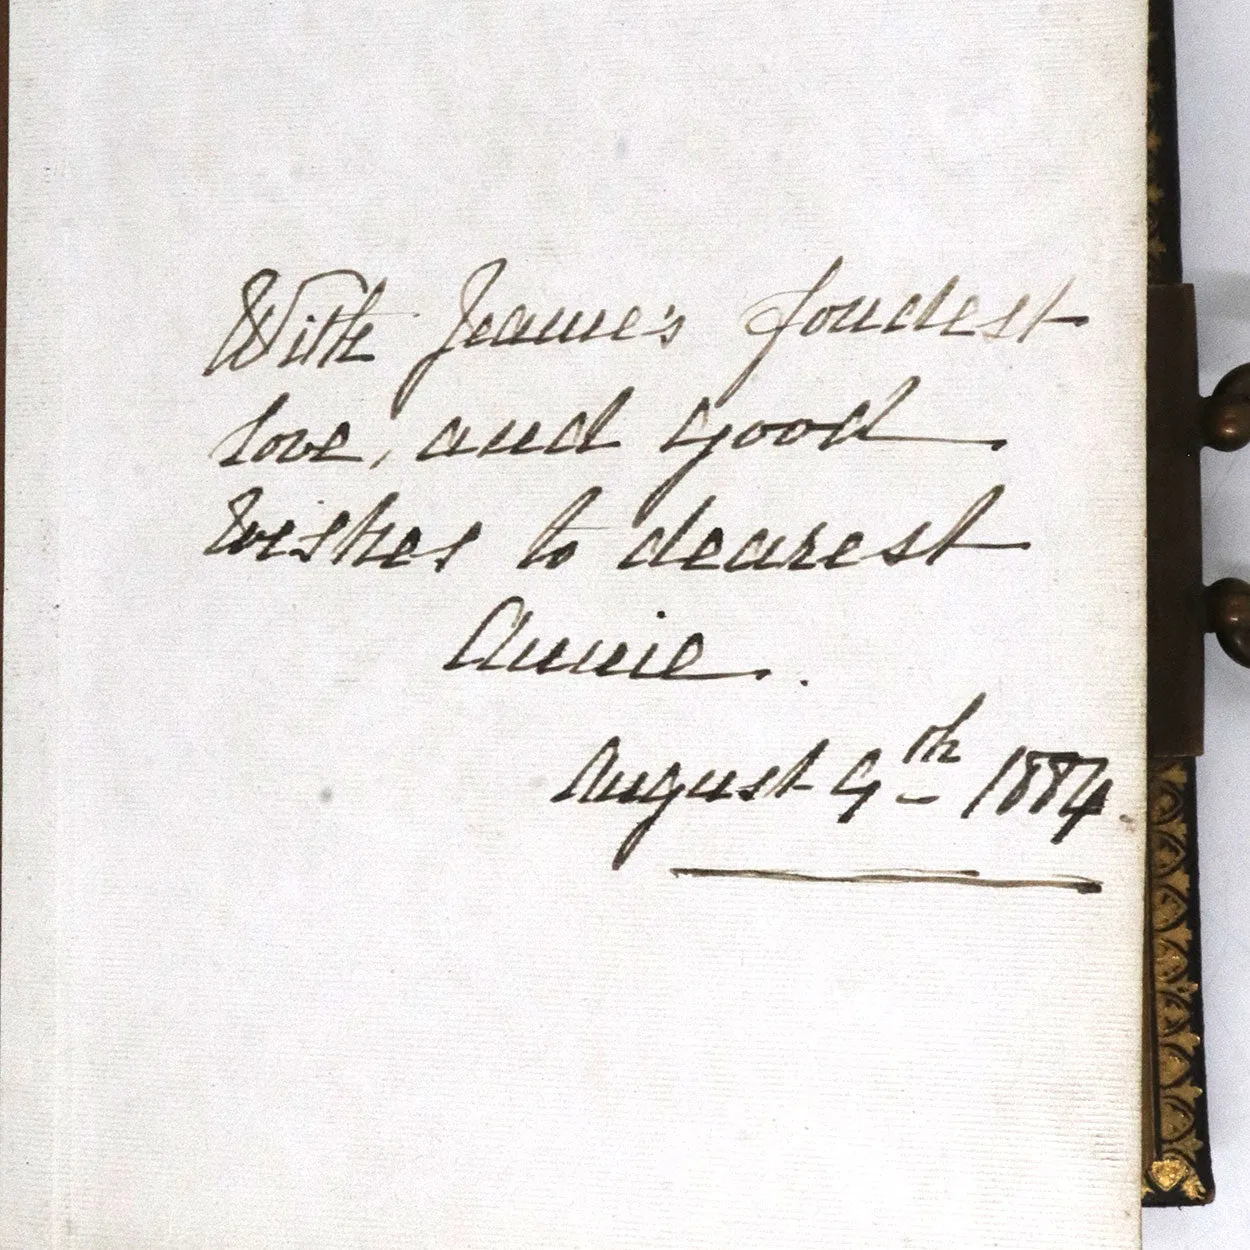 With Jeanne's fondest
love, and good
wishes to dearest
Annie.
August 9th 1884.